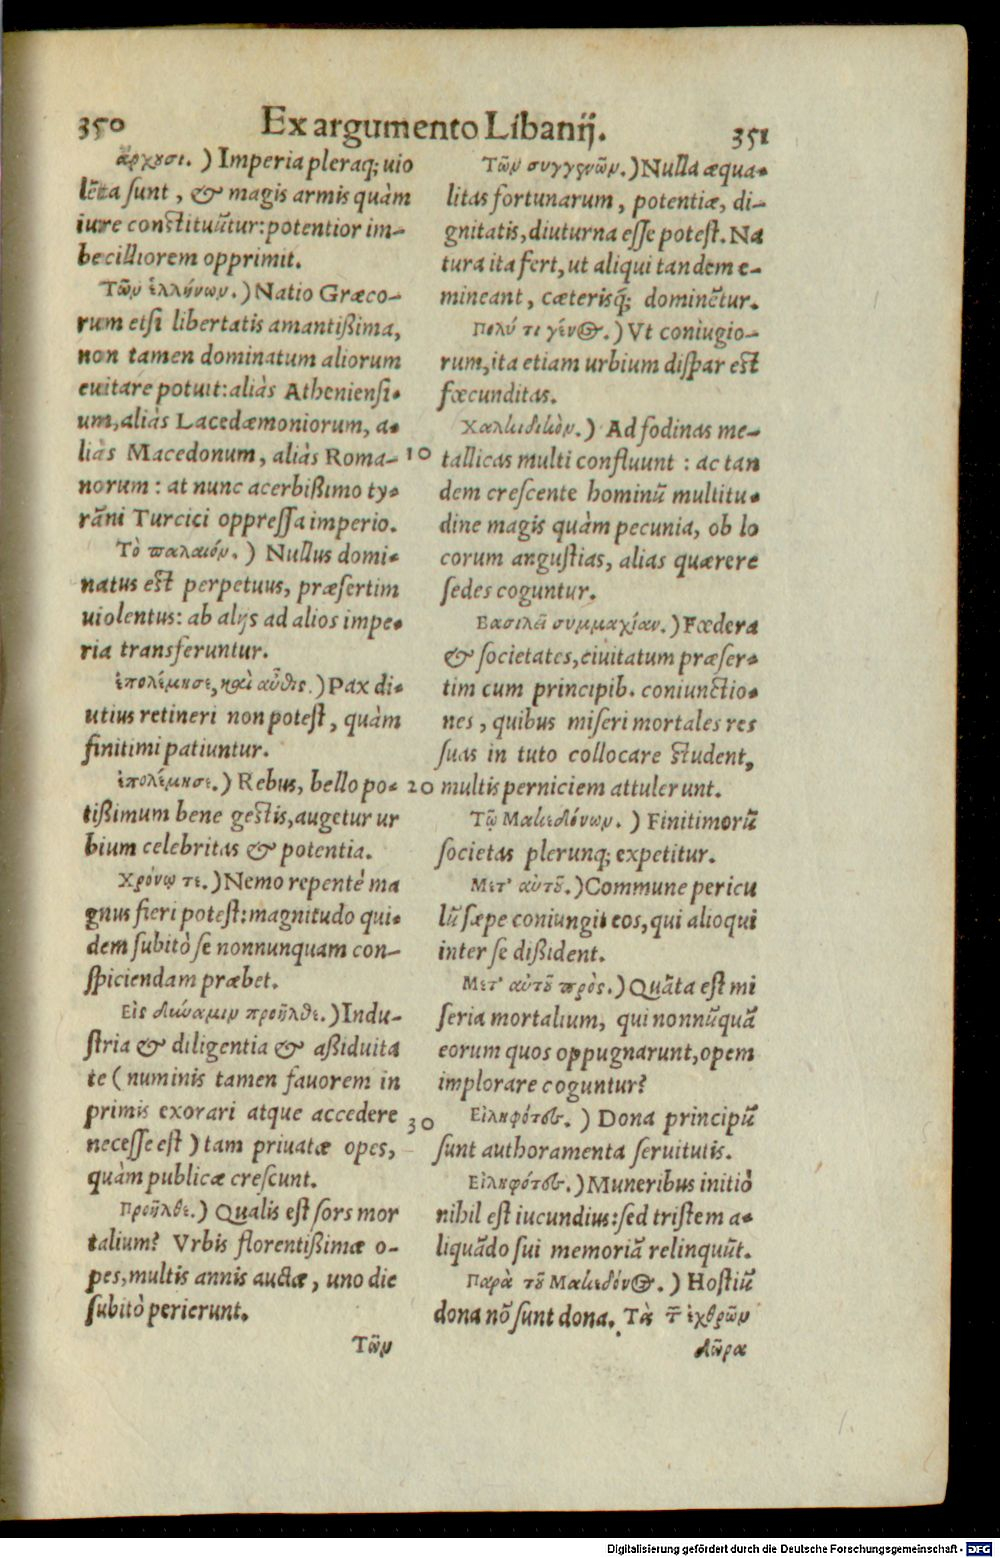 350 Ex argumento Libanij. 351
ἄρχουσι. ) Imperia pleraq; uio
lēta sunt, & magis armis quàm
iure constituūtur: potentior im-
becilliorem opprimit.
Τῶν ἑλλήνων. ) Natio Græco-
rum etsi libertatis amantißima,
non tamen dominatum aliorum
euitare potuit: aliàs Atheniensi-
um, aliàs Lacedæmoniorum, a-
liàs Macedonum, aliàs Roma-
norum: at nunc acerbißimo ty-
rāni Turcici oppressa imperio.
Τὸ παλαιόν. ) Nullus domi-
natus est perpetuus, præsertim
uiolentus: ab alijs ad alios impe-
ria transferuntur.
ἐπολέμησε, καὶ αὖθις. ) Pax di-
utius retineri non potest, quàm
finitimi patiuntur.
ἐπολέμησε. ) Rebus, bello po-
tißimum bene gestis, augetur ur
bium celebritas & potentia.
Χρόνῳ τε. ) Nemo repentè ma
gnus fieri potest: magnitudo qui-
dem subitò se nonnunquam con-
spiciendam præbet.
Εἰς δύναμιν προῆλθε. ) Indu-
stria & diligentia & aßiduita
te ( numinis tamen fauorem in
primis exorari atque accedere
necesse est ) tam priuatæ opes,
quàm publicæ crescunt.
Προῆλθε. ) Qualis est sors mor
talium? Vrbis florentißimæ o-
pes, multis annis auctæ, uno die
subitò perierunt.
Τῶν
Τῶν συγγενῶν. ) Nulla æqua-
litas fortunarum, potentiæ, di-
gnitatis, diuturna esse potest. Na
tura ita fert, ut aliqui tandem e-
mineant, cæterisq́; dominētur.
Πολύ τι γένος. ) Vt coniugio-
rum, ita etiam urbium dispar est
fœcunditas.
Χαλκιδικὸν. ) Ad fodinas me-
10 tallicas multi confluunt : ac tan
dem crescente hominū multitu-
dine magis quàm pecunia, ob lo
corum angustias, alias quærere
sedes coguntur.
Βασιλεῖ συμμαχίαν. ) Fœdera
& societates, ciuitatum præser-
tim cum principib. coniunctio-
nes, quibus miseri mortales res
suas in tuto collocare student,
20 multis perniciem attulerunt.
Τῷ Μακεδόνων. ) Finitimorū
societas plerunq; expetitur.
Μετ' αὐτοῦ. ) Commune pericu
lū sæpe coniungit eos, qui alioqui
inter se dißident.
Μετ' αὐτοῦ πρὸς. ) Quāta est mi
seria mortalium, qui nonnūquā
eorum quos oppugnarunt, opem
implorare coguntur?
30 Εἰληφότες. ) Dona principū
sunt authoramenta seruitutis.
Εἰληφότες. ) Muneribus initiò
nihil est iucundius: sed tristem a-
liquādo sui memoriā relinquūt.
Παρὰ τοῦ Μακεδόνος. ) Hostiū
dona nō sunt dona. Τὰ τῶν ἐχθρῶν
δῶρα
Digitalisierung gefördert durch die Deutsche Forschungsgemeinschaft - DFG